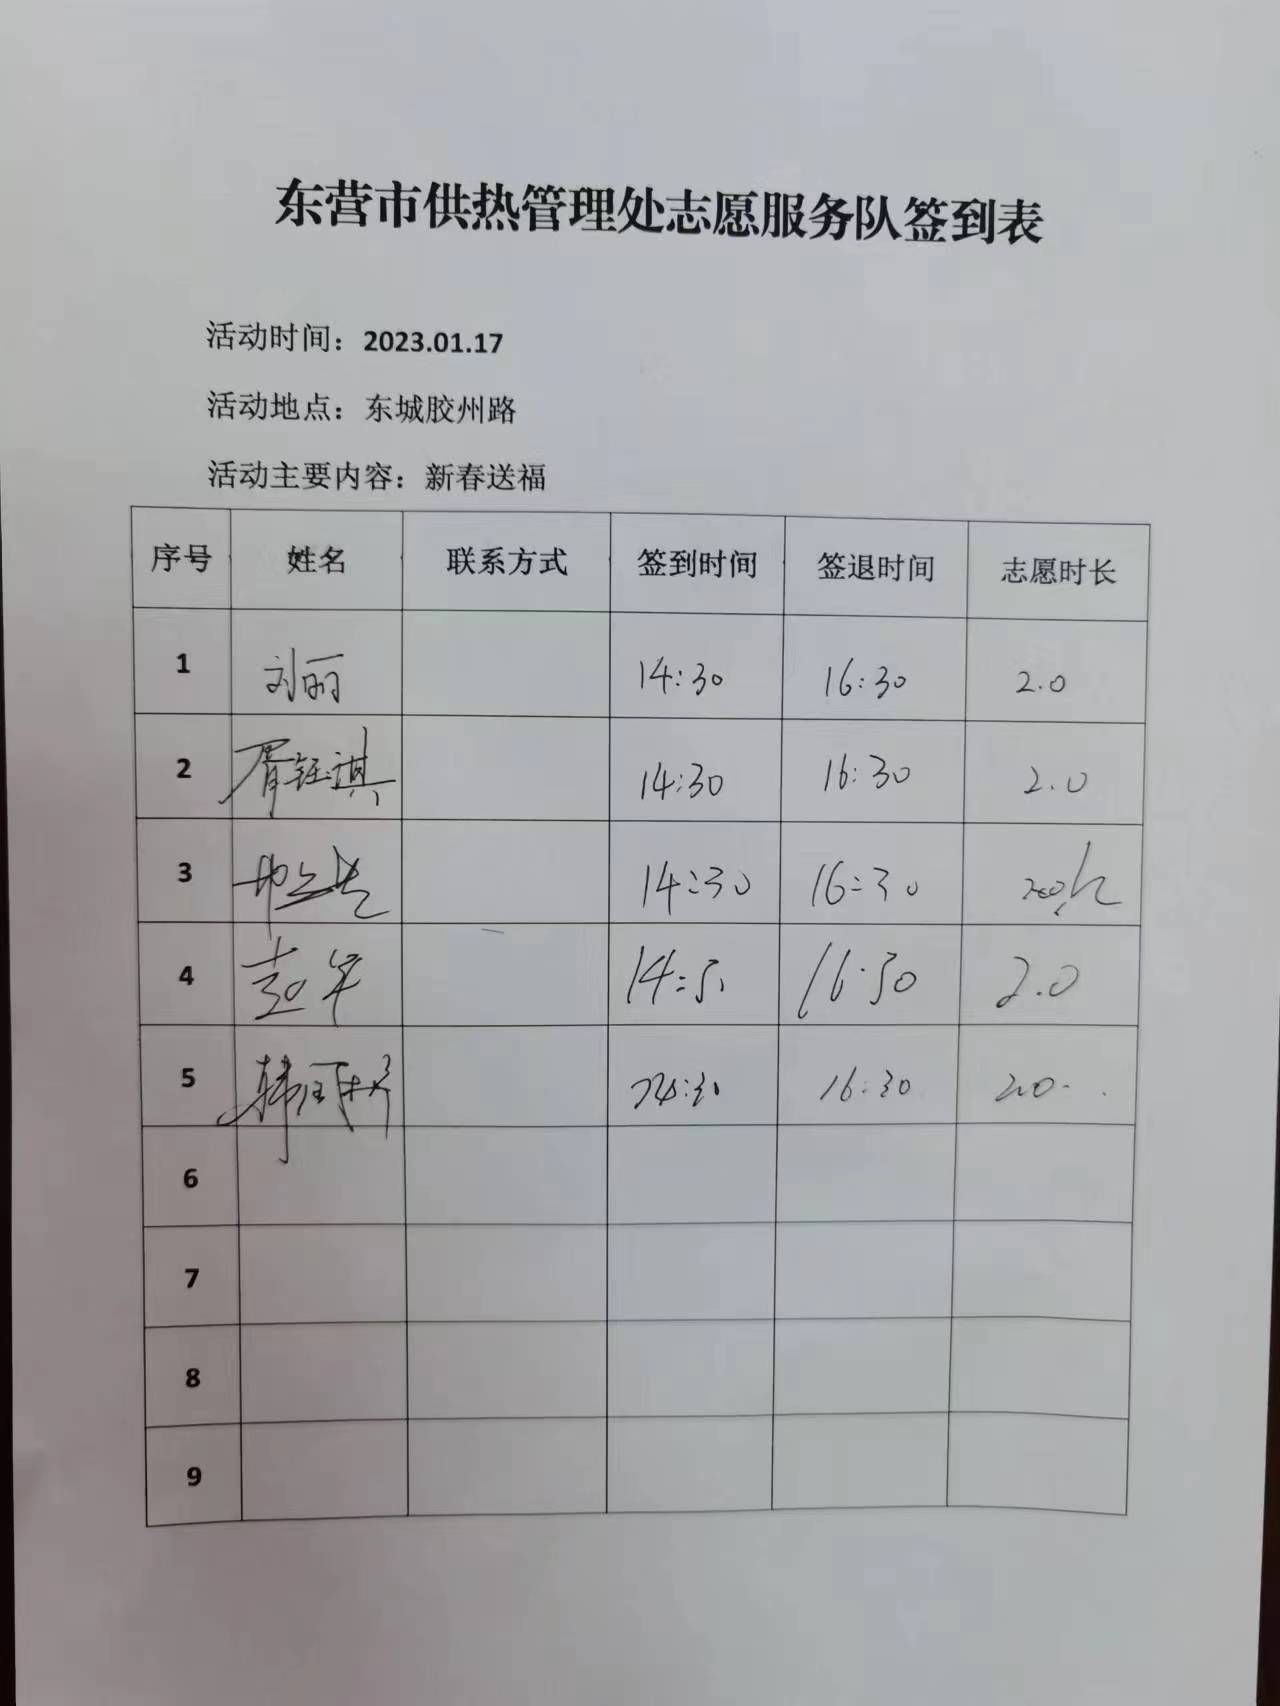 东营市供热管理处志愿服务队签到表
活动时间：2023.01.17
活动地点：东城胶州路
活动主要内容：新春送福
序号 姓名 联系方式 签到时间 签退时间 志愿时长
1 刘丽 14:30 16:30 2.0
2 胥钰淇 14:30 16:30 2.0
3 14:30 16:30
4 14:30 16:30 2.0
5 韩 14:30 16:30 2.0
6
7
8
9